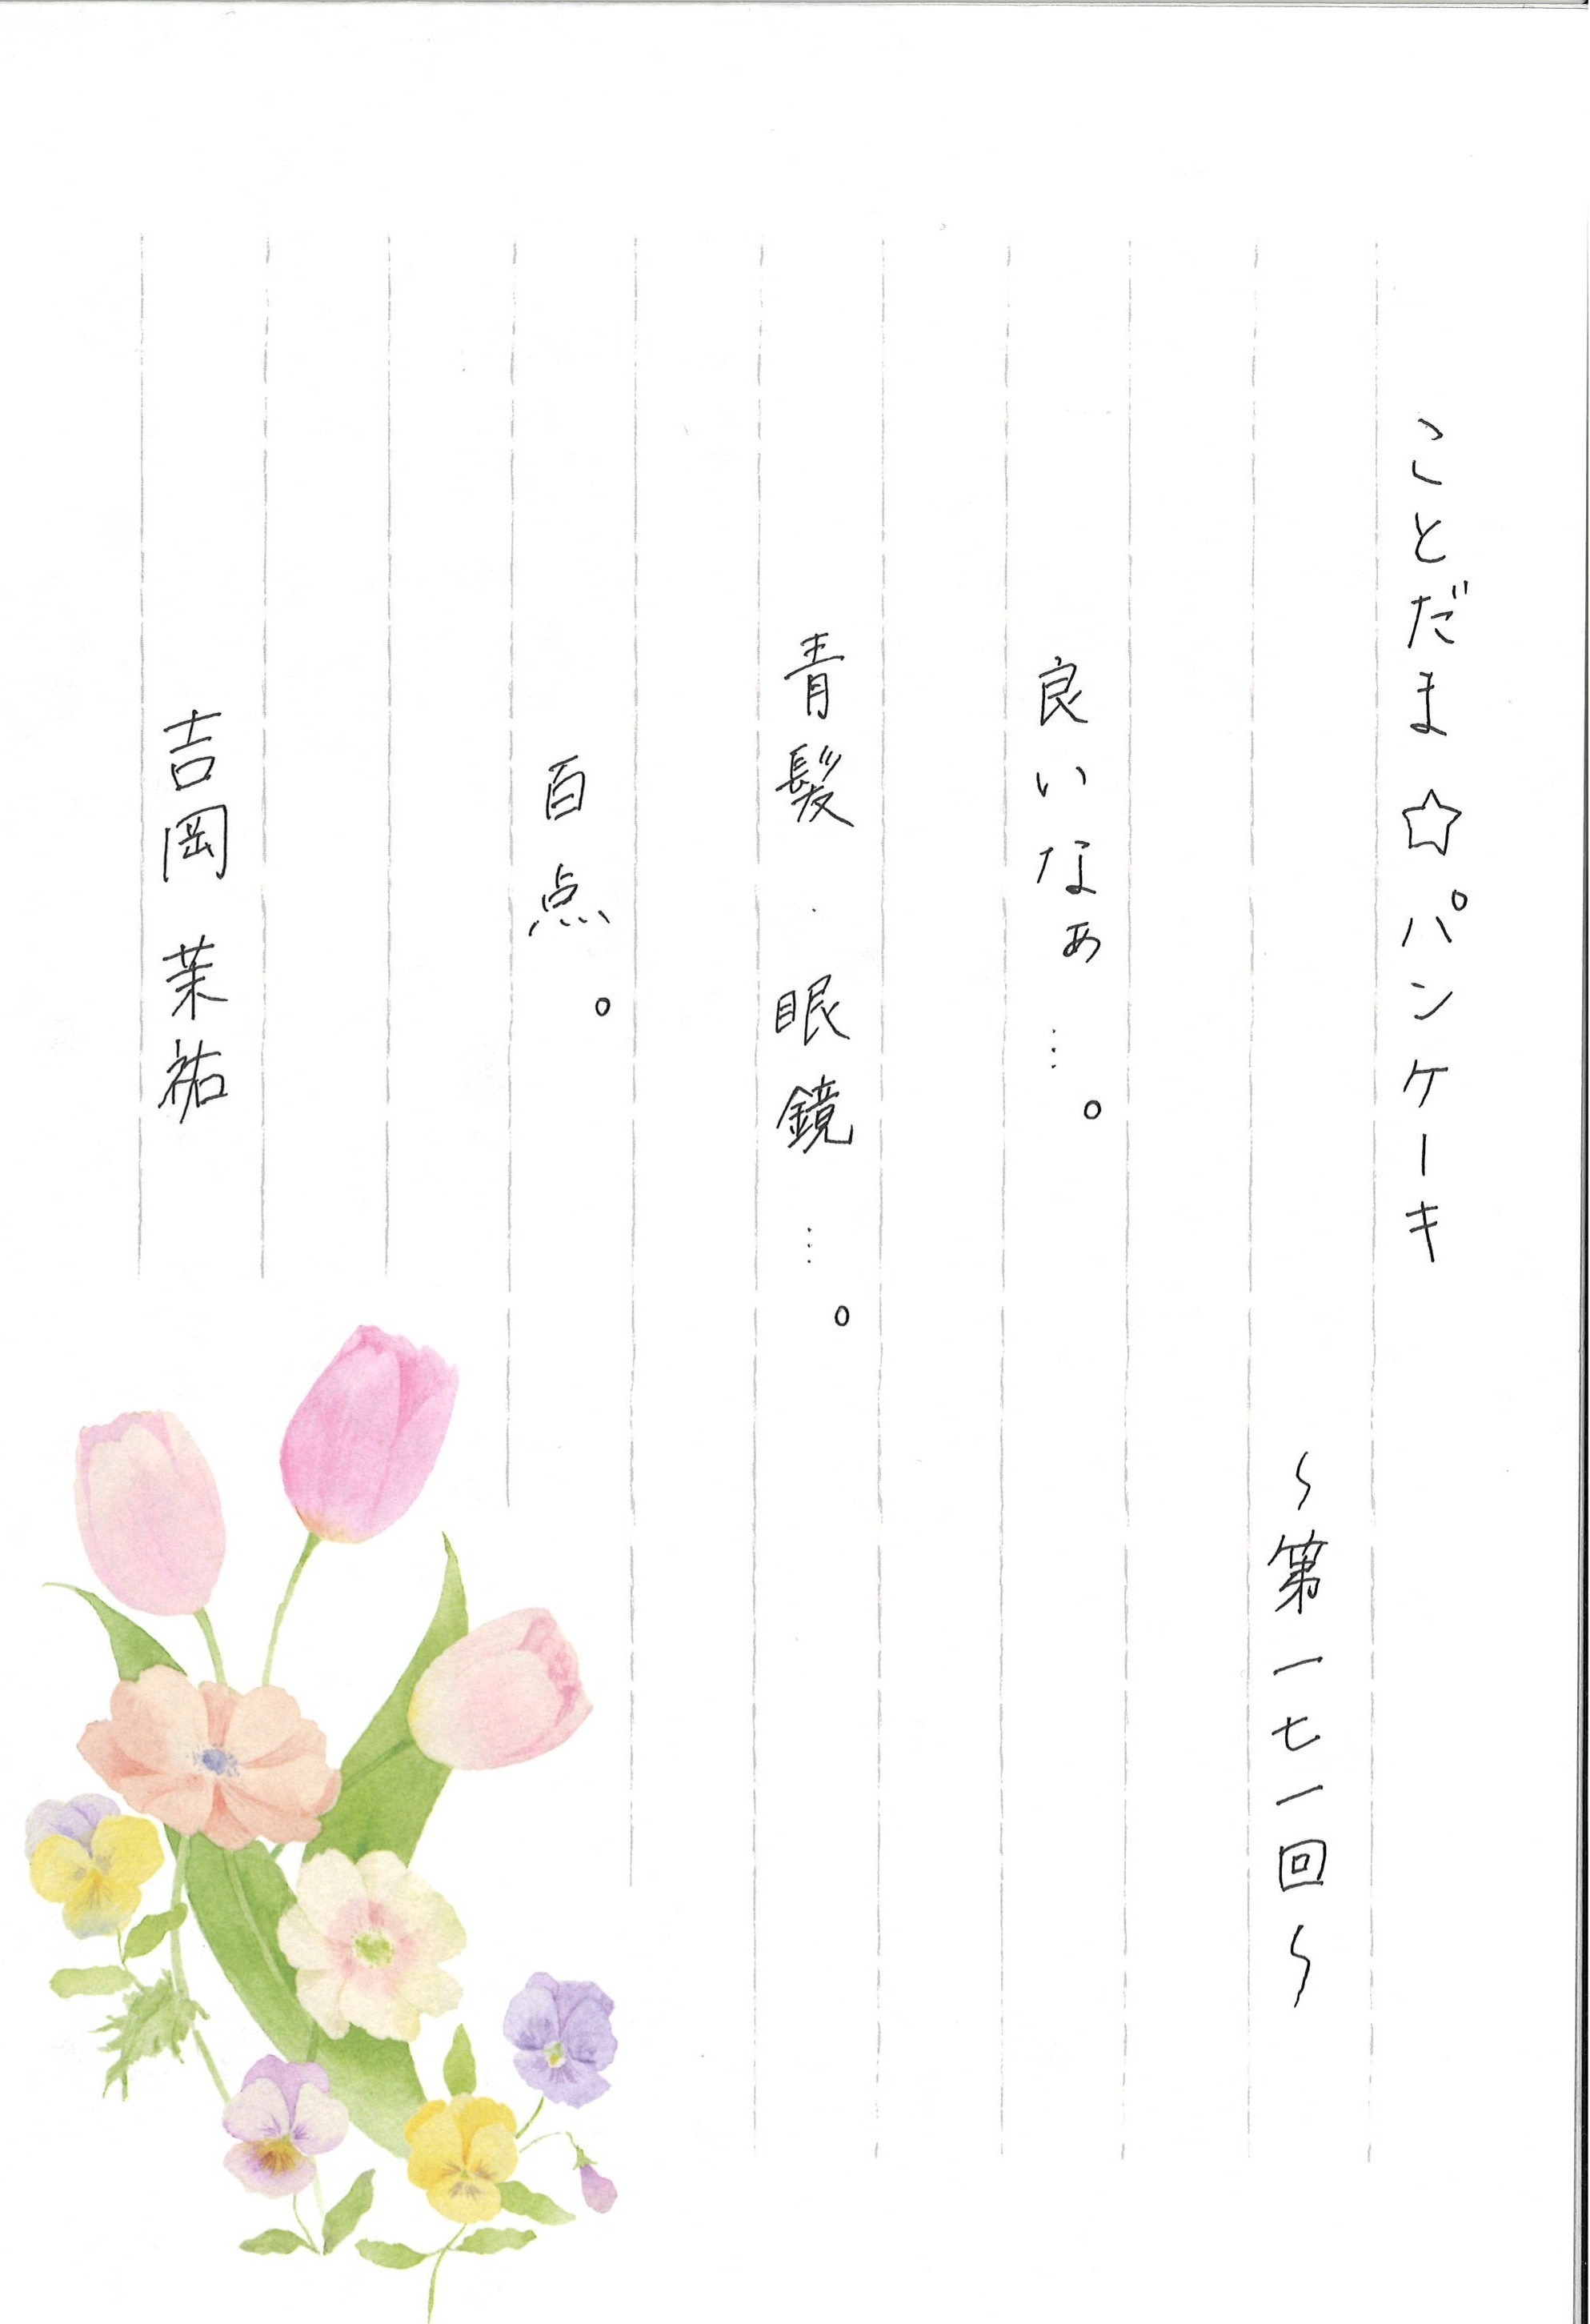 ことだま☆パンケーキ
～第一七一回～
良いなぁ…。
青髪・眼鏡…。
百点。
吉岡茉祐